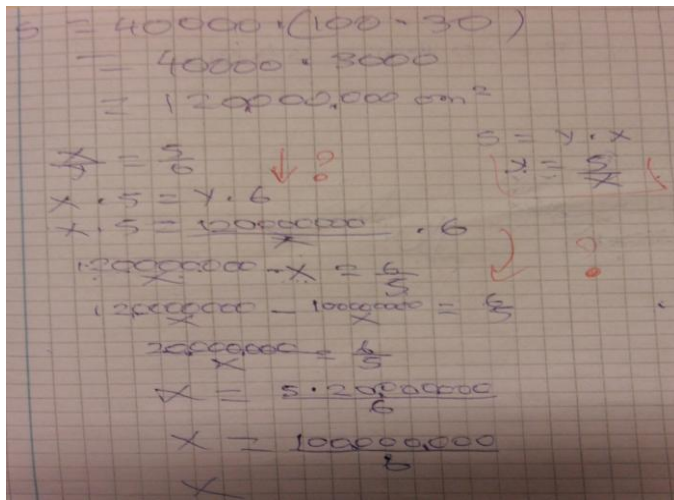 S = 40000 · (100 · 30)
= 40000 · 3000
= 120000.000 cm²
x/y = 5/6
?
S = y · x
y = S/x
x · 5 = y · 6
x · 5 = 120000000/x · 6
?
120000.000/x - x = 6/5
120000000/x - 100000000/x = 6/5
20.000.000/x = 6/5
x = 5 · 20.000000/6
x = 100.000.000/6
x